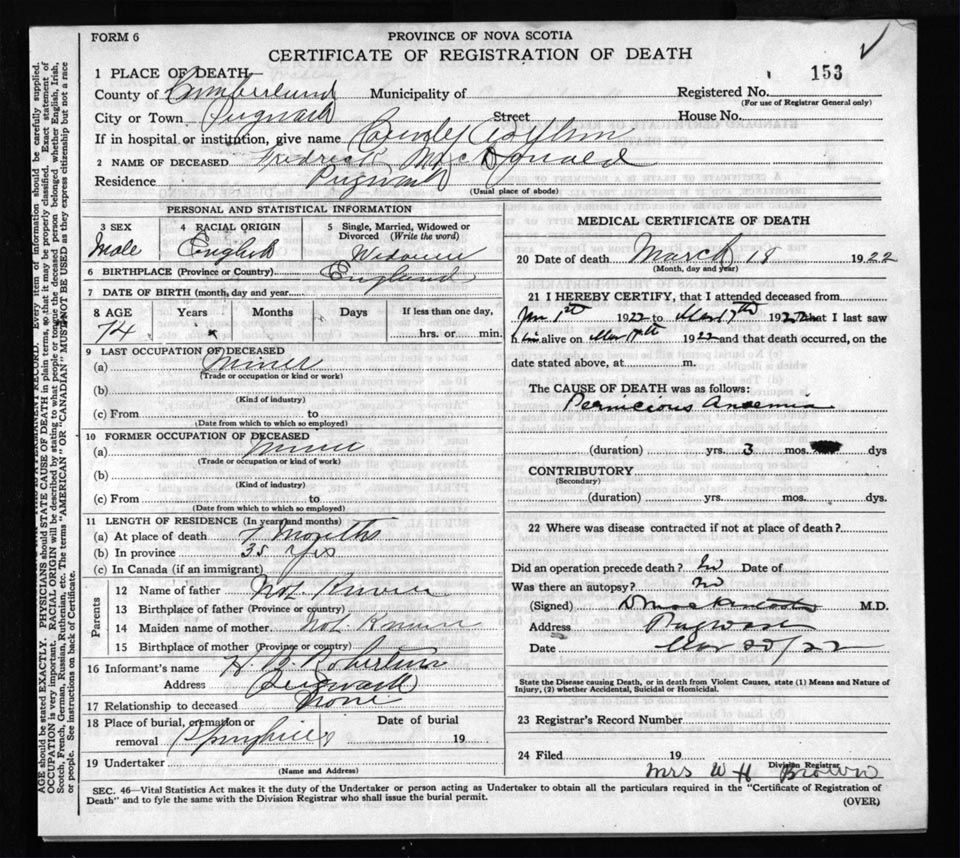 FORM 6
PROVINCE OF NOVA SCOTIA
CERTIFICATE OF REGISTRATION OF DEATH
1 PLACE OF DEATH—
153
County of Cumberland Municipality of Registered No.
(For use of Registrar General only)
City or Town Pugwash Street House No.
If in hospital or institution, give name County Asylum
2 NAME OF DECEASED MacDonald
Residence Pugwash
(Usual place of abode)
PERSONAL AND STATISTICAL INFORMATION
3 SEX 4 RACIAL ORIGIN 5 Single, Married, Widowed or Divorced (Write the word)
Male English Widower
6 BIRTHPLACE (Province or Country) England
7 DATE OF BIRTH (month, day and year)
8 AGE Years Months Days If less than one day,
74 hrs. or min.
9 LAST OCCUPATION OF DECEASED
(a) Miner
(Trade or occupation or kind of work)
(b)
(Kind of industry)
(c) From to
(Date from which to which so employed)
10 FORMER OCCUPATION OF DECEASED
(a) Miner
(Trade or occupation or kind of work)
(b)
(Kind of industry)
(c) From to
(Date from which to which so employed)
11 LENGTH OF RESIDENCE (In years and months)
(a) At place of death 7 Months
(b) In province 35 yrs
(c) In Canada (if an immigrant)
Parents
12 Name of father Not Known
13 Birthplace of father (Province or country)
14 Maiden name of mother Not Known
15 Birthplace of mother (Province or country)
16 Informant's name Robertson
Address Pugwash
17 Relationship to deceased None
18 Place of burial, cremation or removal Springhill Date of burial 19
19 Undertaker
(Name and Address)
MEDICAL CERTIFICATE OF DEATH
20 Date of death March 18 1922
(Month, day and year)
21 I HEREBY CERTIFY, that I attended deceased from
1st 1922 to Mar 17th 1922 that I last saw
him alive on Mar 17th 1922 and that death occurred, on the
date stated above, at m.
The CAUSE OF DEATH was as follows:
Pernicious Anaemia
(duration) yrs. 3 mos. dys
CONTRIBUTORY
(Secondary)
(duration) yrs. mos. dys.
22 Where was disease contracted if not at place of death?
Did an operation precede death? No Date of
Was there an autopsy? No
(Signed) M.D.
Address Pugwash
Date Mar 20/22
State the Disease causing Death, or in death from Violent Causes, state (1) Means and Nature of
Injury, (2) whether Accidental, Suicidal or Homicidal.
23 Registrar's Record Number
24 Filed 19
Division Registrar
Mrs W H Brown
SEC. 46—Vital Statistics Act makes it the duty of the Undertaker or person acting as Undertaker to obtain all the particulars required in the "Certificate of Registration of
Death" and to fyle the same with the Division Registrar who shall issue the burial permit.
(OVER)
Every item of information should be carefully supplied.
AGE should be stated EXACTLY. PHYSICIANS should STATE CAUSE OF DEATH in plain terms, so that it may be properly classified. Exact statement of
OCCUPATION is very important. RACIAL ORIGIN will be described by stating to what people or tongue the deceased person belonged whether English, Irish,
Scotch, French, German, Russian, Ruthenian, etc. The terms "AMERICAN" OR "CANADIAN" MUST NOT BE USED as they express citizenship but not a race
or people. See instructions on back of Certificate.